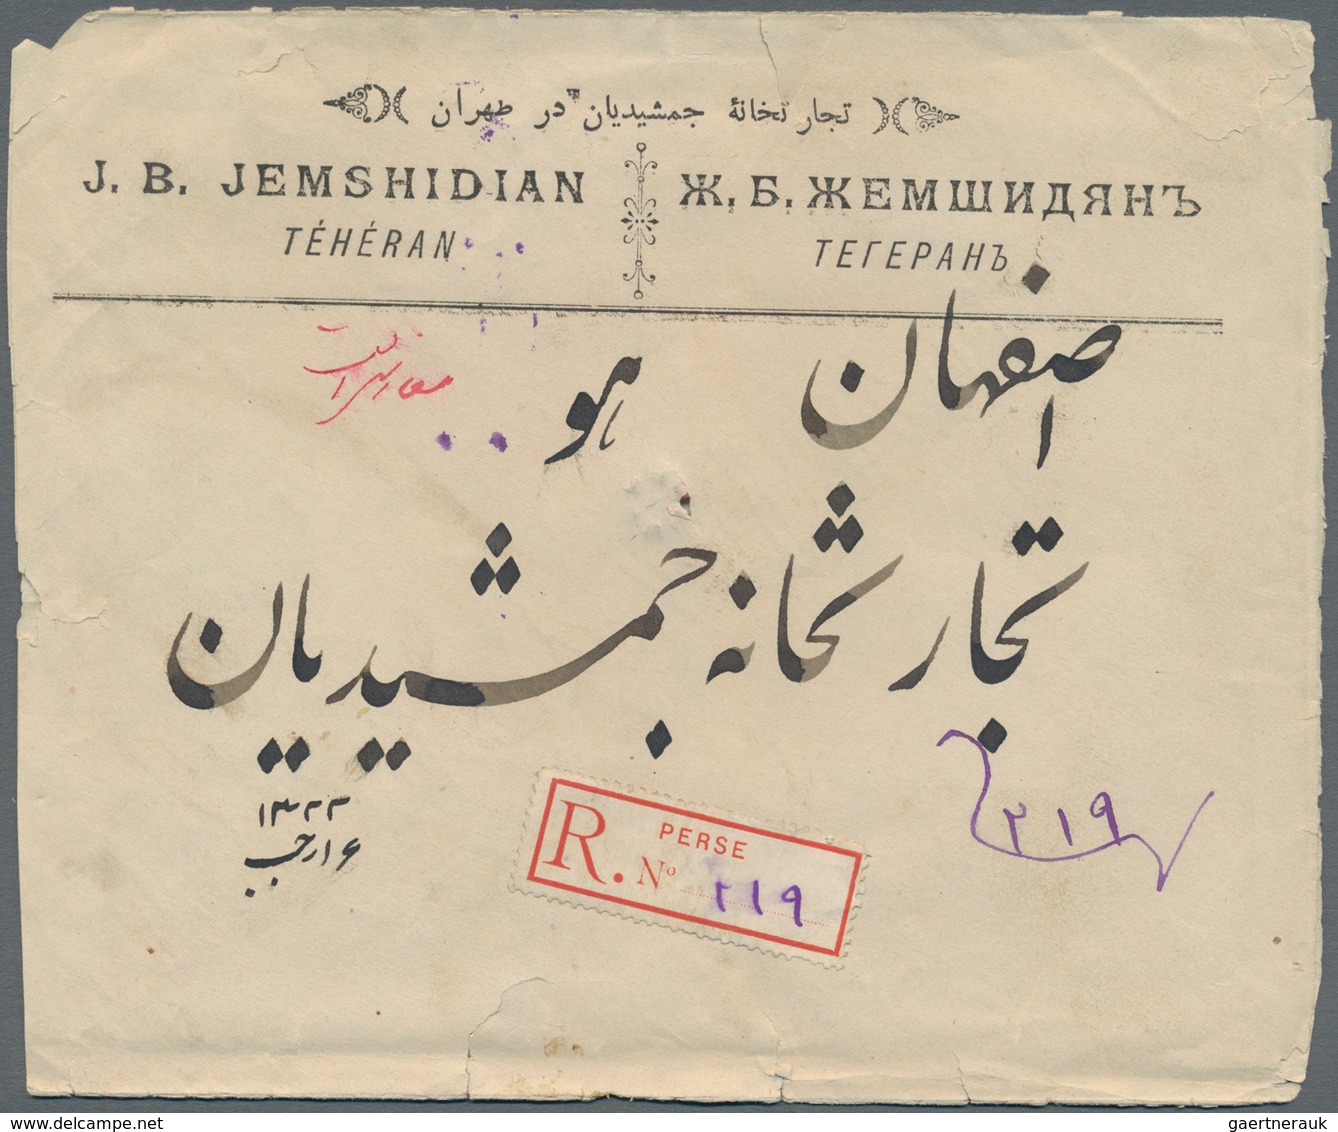 تجارتخانهٔ جمشیدیان در طهران
J. B. JEMSHIDIAN
TÉHÉRAN
Ж. Б. ЖЕМШИДЯНЪ
ТЕГЕРАНЪ
اصفهان
هو
تجارتخانه جمشیدیان
۱۳۲۲
۱۶ رجب
PERSE
R. Nº ۲۱۹
۲۱۹
gaertnerauk